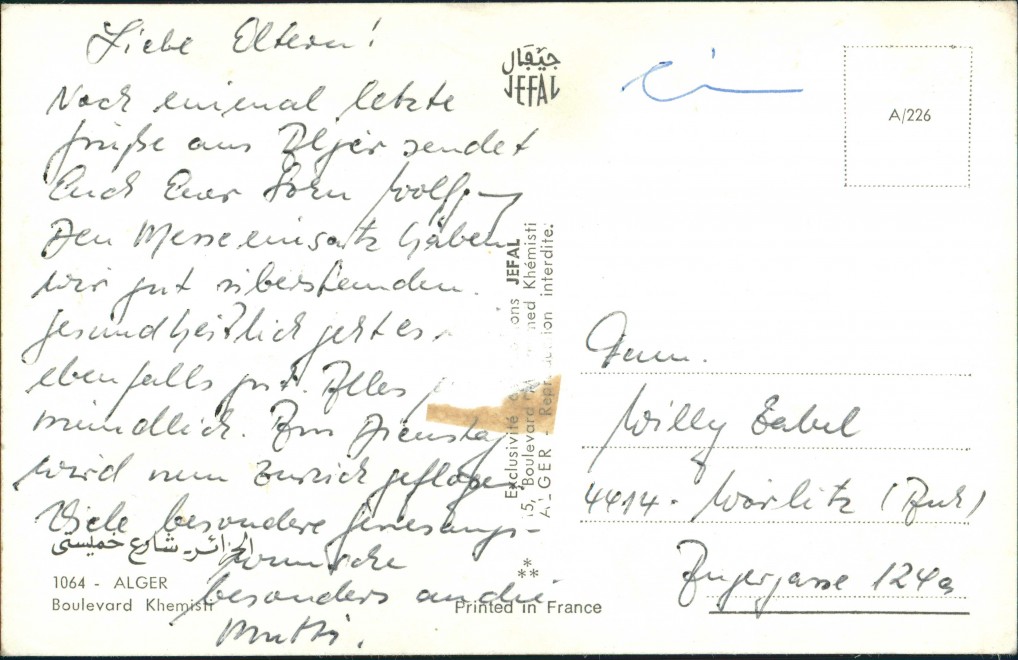 Liebe Eltern!
Noch einmal letzte
Grüße aus Algier sendet
Euch Euer Sohn Wolfgang
Den Messeeinsatz haben
wir gut überstanden.
Gesundheitlich geht es
ebenfalls gut. Alles
mündlich. Am Dienstag
wird nun zurück geflogen.
Viele besondere Genesungs-
wünsche
besonders an die
Mutti.
الجزائر ـ شارع خميستي
1064 - ALGER
Boulevard Khemisti
جيفال
JEFAL
Exclusivité ons JEFAL
5, Boulevard med Khémisti
ALGER - Repr tion interdite.
**
Printed in France
A/226
Fam.
Willy Zabel
4414 - Wörlitz (Anh)
124a